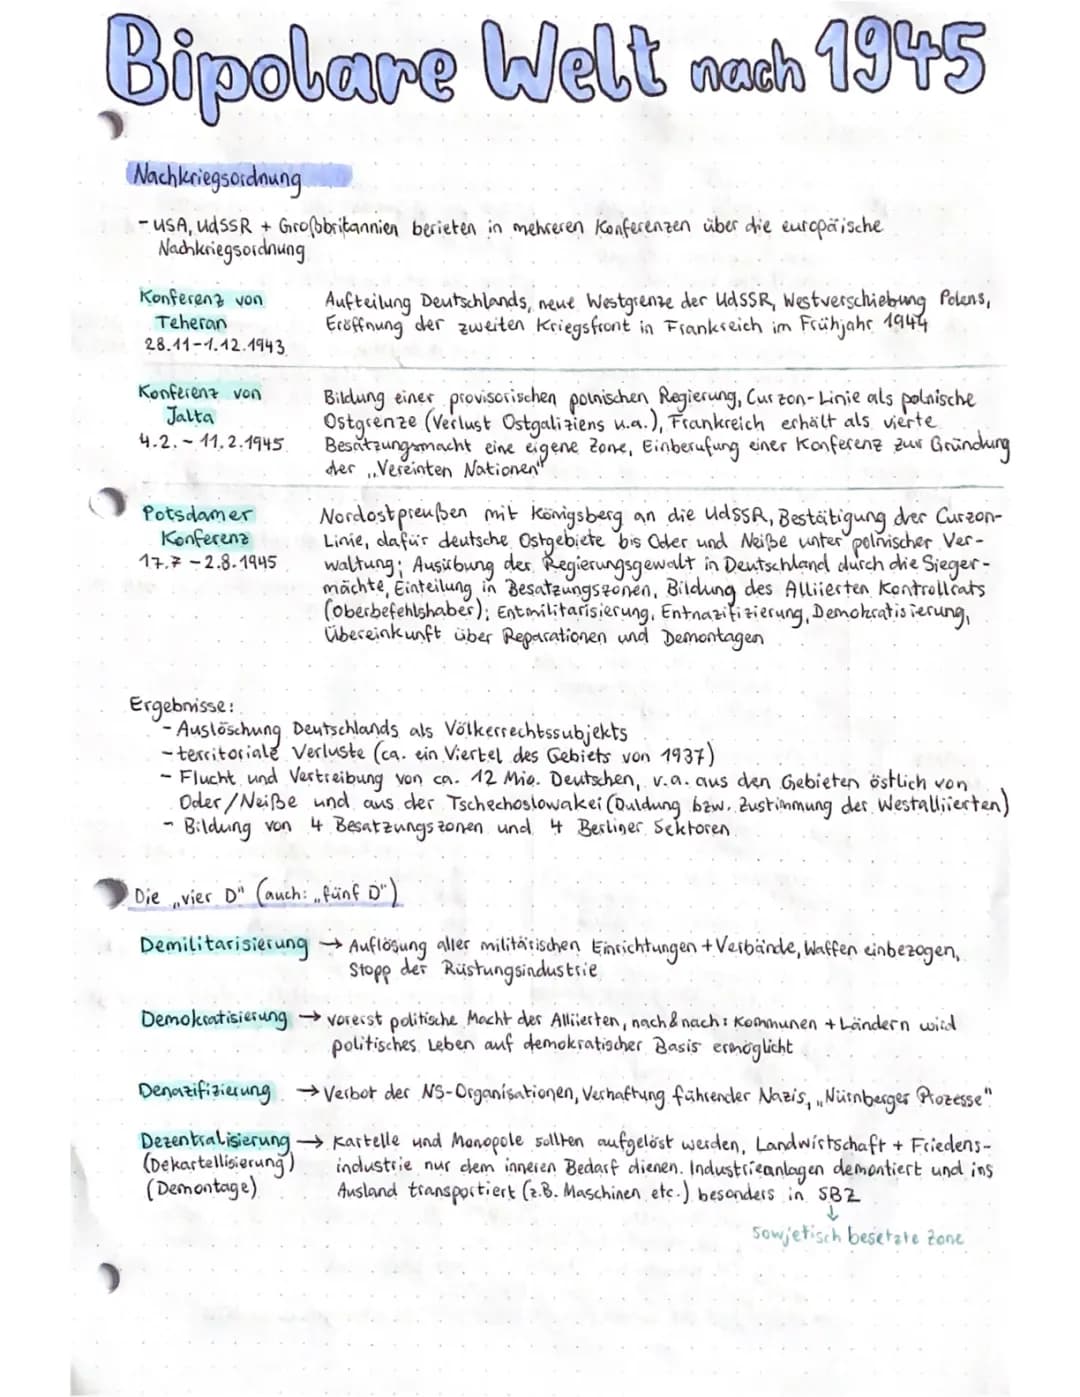 Bipolare Welt nach 1945
Nachkriegsordnung
- USA, UdSSR + Großbritannien berieten in mehreren Konferenzen über die europäische
Nachkriegsordnung
Konferenz von
Teheran
28.11-1.12.1943
Aufteilung Deutschlands, neue Westgrenze der UdSSR, Westverschiebung Polens,
Eröffnung der zweiten Kriegsfront in Frankreich im Frühjahr 1944
Konferenz von
Jalta
4.2. - 11.2.1945
Bildung einer provisorischen polnischen Regierung, Curzon-Linie als polnische
Ostgrenze (Verlust Ostgaliziens u.a.), Frankreich erhält als vierte
Besatzungsmacht eine eigene Zone, Einberufung einer Konferenz zur Gründung
der „Vereinten Nationen"
Potsdamer
Konferenz
17.7 - 2.8.1945
Nordostpreußen mit Königsberg an die UdSSR, Bestätigung der Curzon-
Linie, dafür deutsche Ostgebiete bis Oder und Neiße unter polnischer Ver-
waltung; Ausübung der Regierungsgewalt in Deutschland durch die Sieger-
mächte, Einteilung in Besatzungszonen, Bildung des Alliierten Kontrollrats
(Oberbefehlshaber); Entmilitarisierung, Entnazifizierung, Demokratisierung,
Übereinkunft über Reparationen und Demontagen
Ergebnisse:
- Auslöschung Deutschlands als Völkerrechtssubjekts
- territoriale Verluste (ca. ein Viertel des Gebiets von 1937)
- Flucht und Vertreibung von ca. 12 Mio. Deutschen, v.a. aus den Gebieten östlich von
Oder/Neiße und aus der Tschechoslowakei (Duldung bzw. Zustimmung der Westalliierten)
- Bildung von 4 Besatzungszonen und 4 Berliner Sektoren
Die „vier D" (auch: „fünf D")
Demilitarisierung → Auflösung aller militärischen Einrichtungen + Verbände, Waffen einbezogen,
Stopp der Rüstungsindustrie
Demokratisierung → vorerst politische Macht der Alliierten, nach & nach: Kommunen + Ländern wird
politisches Leben auf demokratischer Basis ermöglicht
Denazifizierung → Verbot der NS-Organisationen, Verhaftung führender Nazis, „Nürnberger Prozesse"
Dezentralisierung → Kartelle und Monopole sollten aufgelöst werden, Landwirtschaft + Friedens-
(Dekartellisierung) industrie nur dem inneren Bedarf dienen. Industrieanlagen demontiert und ins
(Demontage) Ausland transportiert (z.B. Maschinen etc.) besonders in SBZ
↓
sowjetisch besetzte Zone